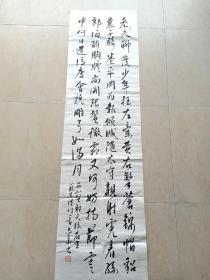 老夫聊發少年狂左牽黃右擎蒼錦帽貂
裘千騎卷平岡為報傾城隨太守親射虎看孫
郎酒酣胸膽尚開張鬢微霜又何妨持節雲
中何日遣馮唐會挽雕弓如滿月
西北望射天狼